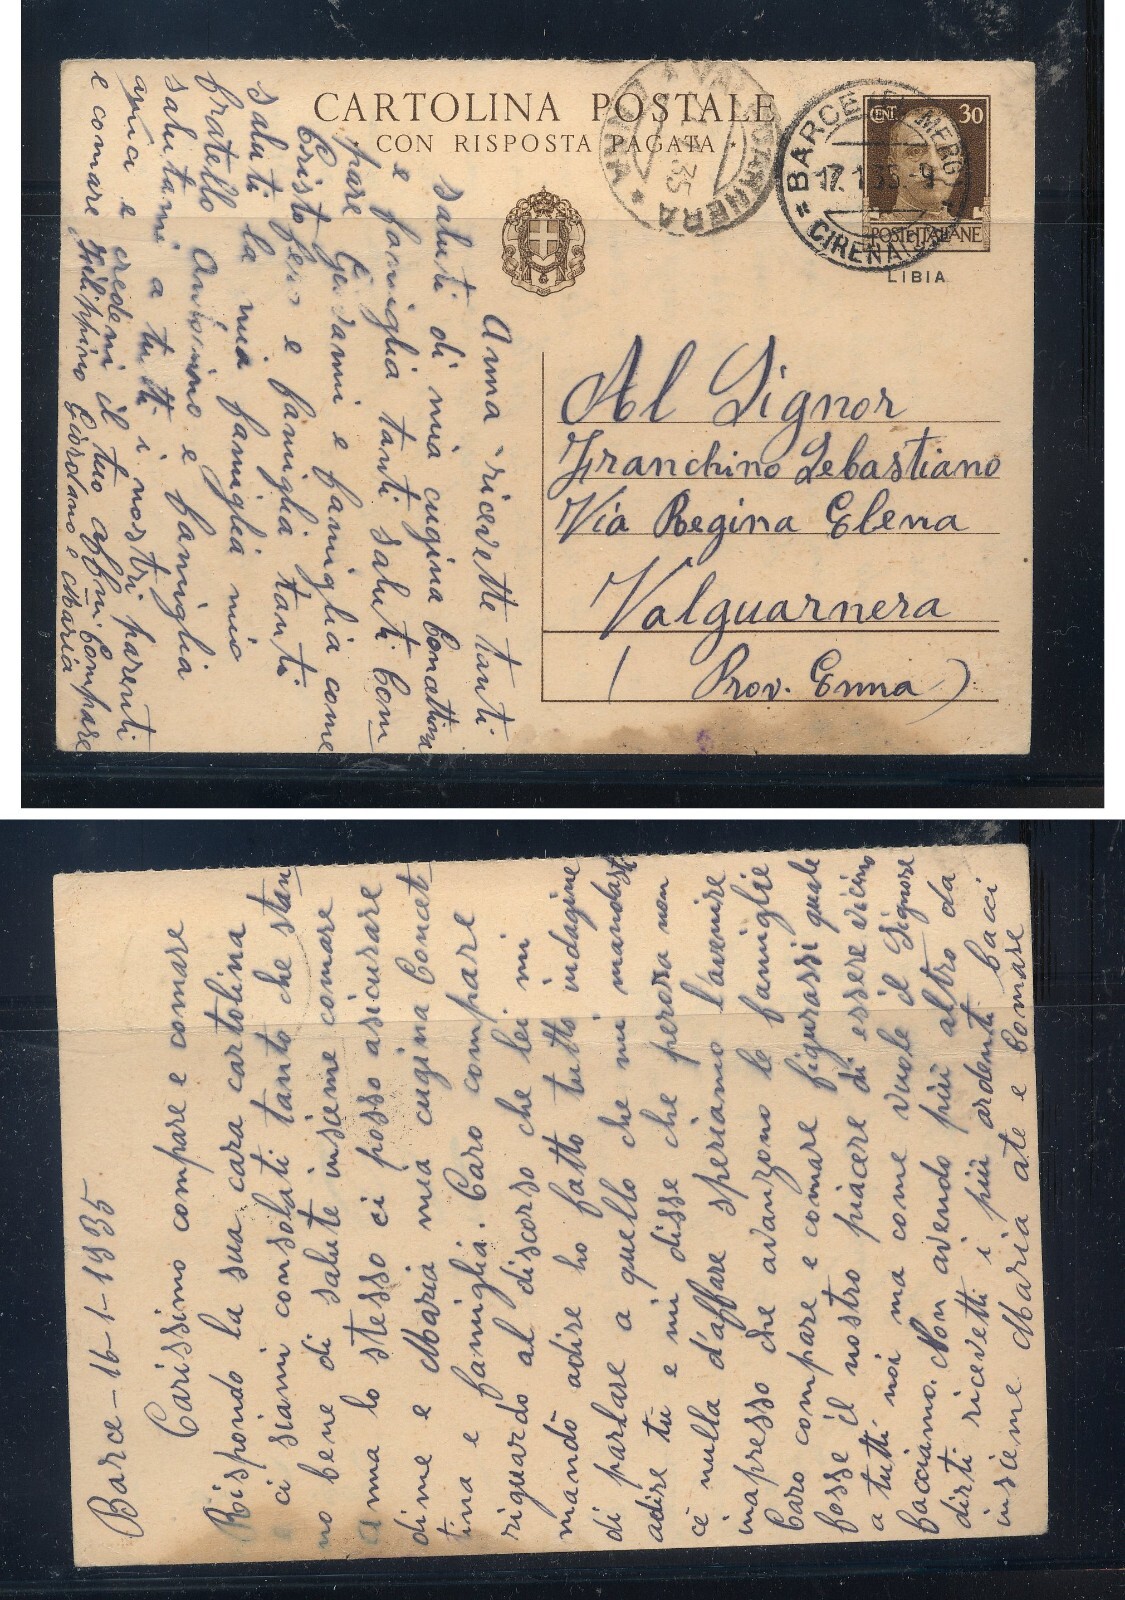 CARTOLINA POSTALE
CON RISPOSTA PAGATA
VALGUARNERA
35
BARCE
CIRENAICA
17.1.35. 9
CENT. 30
POSTE ITALIANE
LIBIA
Al Signor
Franchino Sebastiano
Via Regina Elena
Valguarnera
( Prov. Enna )
Anna ricevette tanti
saluti di mia cugina Concettina
e famiglia tanti saluti Com
pare Giusanni e famiglia come
Cristofero e famiglia tanti
salati la mia famiglia mio
fratello e famiglia
salutami a tutti i nostri parenti
amici e credemi il tuo affmi Compare
e comare Filippino Giordano e Maria
Barce - 16-1-1935.
Carissimo compare e comare
Rispondo la sua cara cartolina
ci siami consolati tanto che stan
no bene di salute insieme comare
a ma lo stesso ci posso asicurare
di me e Maria mia cugina Concet
tina e famiglia. Caro compare
riguardo al discorso che lei mi
mandò adire ho fatto tutto indagine
di parlare a quello che mi mandasti
adire tu e mi disse che perora non
cè nulla d'affare speriamo l'avenire
inapresso che avanzono le famiglie
Caro compare e comare figurassi quale
fosse il nostro piacere di essere vicino
a tutti noi ma come vuole il Signore
facciamo. Non avendo più altro da
dirti ricevetti i più ardenti bacci
insieme Maria ate e Comare